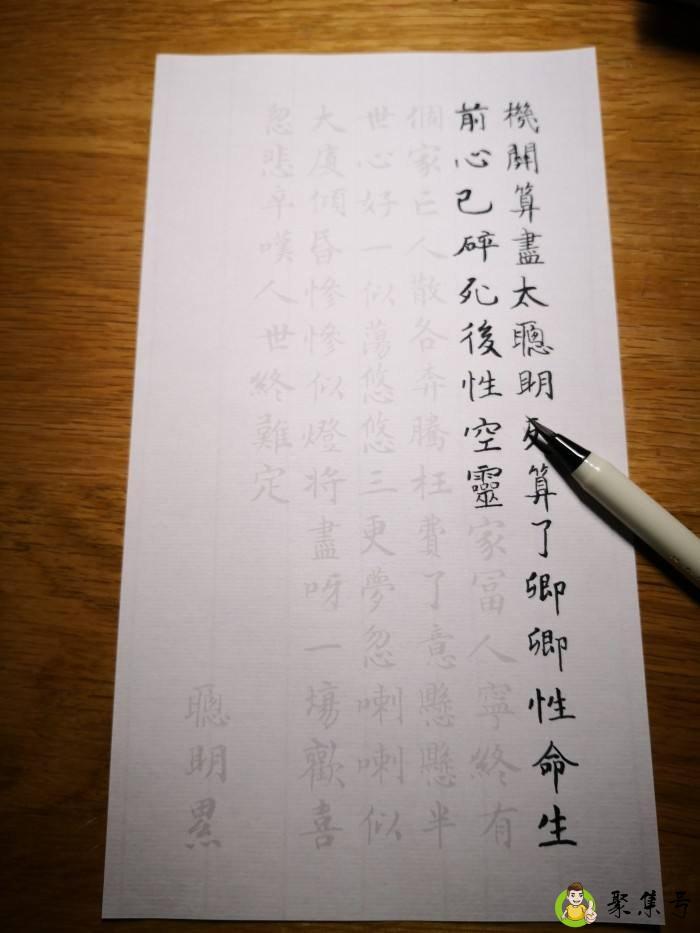 機關算盡太聰明反算了卿卿性命生
前心已碎死後性空靈家冨人寧終有
個家亡人散各奔騰枉費了意懸懸半
世心好一似蕩悠悠三更夢忽喇喇似
大廈傾昏慘慘似燈將盡呀一場歡喜
忽悲辛嘆人世終難定
聰明累
聚集号